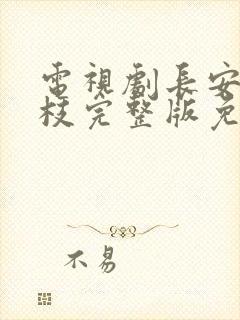 電視劇長安
枝完整版免
不易